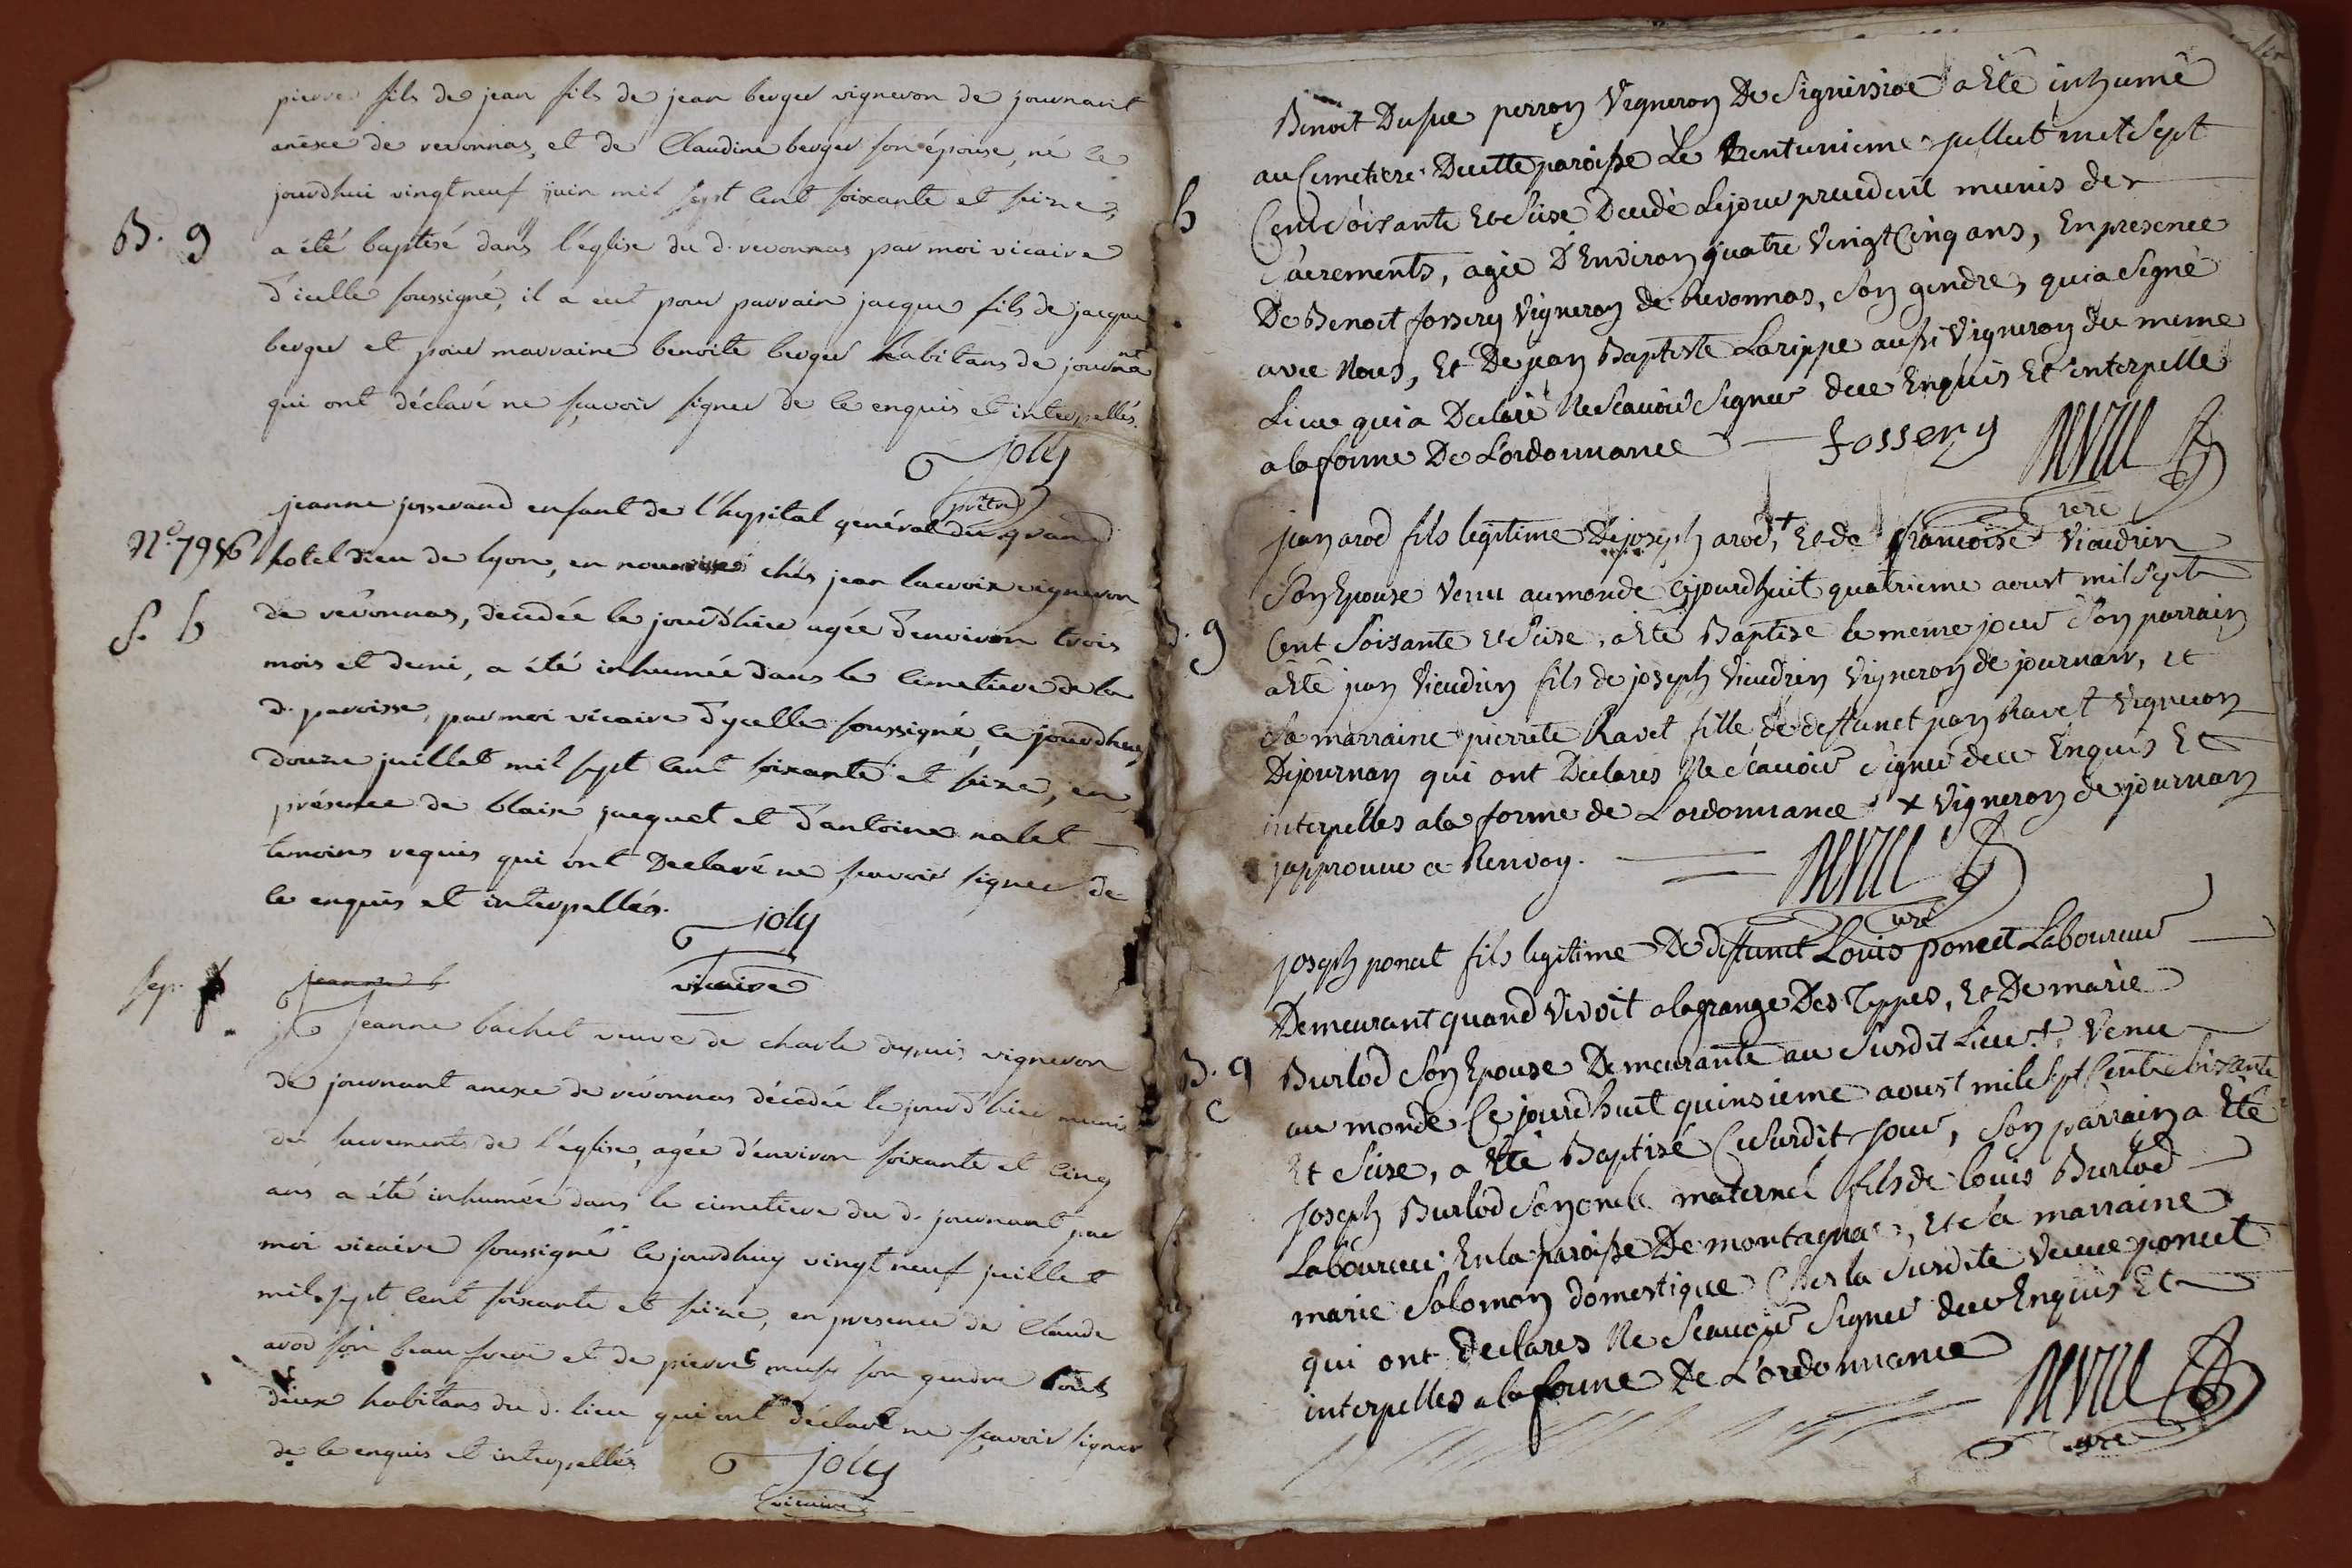 pierre fils de jean fils de jean berger vigneron de journant
anexe de revonnas, et de Claudine berger son épouse, né le
jourdhui vingt neuf juin mil sept cent soixante et seize,
B. g
a été baptisé dans l'église du d. revonnas par moi vicaire
d'icelle soussigné, il a eut pour parrain jacque fils de jacque
berger et pour marraine benoite berger habitans de journant
qui ont déclaré ne sçavoir signer de ce enquis et interpellés.
joly
prêtre
jeanne josserand enfant de l'hopital general du grand
N.o 7986
hotel dieu de lyon, en nourrisse chés jean lacroix vigneron
S. b
de révonnas, decedée le jourd'hier agée d'environ trois
mois et demi, a été inhumée dans le cimetiere de la
d. paroisse, par moi vicaire d'ycelle soussigné, le jourdhuy
douze juillet mil sept cent soixante et seize, en
présence de blaise jacquet et d'antoine nalet
temoins requis qui ont Declaré ne sçavoir signer de
ce enquis et interpellés.
joly
vicaire
sep.
jeanne b
Jeanne bachet veuve de charle dupuis vigneron
de journant anexe de révonnas décedée le jourd'hier munie
des sacrements de l'église, agée d'environ soixante et cinq
ans a été inhumée dans le cimetiere du d. journant par
moi vicaire soussigné le jourdhuy vingt neuf juillet
mil sept cent soixante et seize, en presence de Claude
arod son beau frere et de pierre musy son gendre touts
deux habitans du d. lieu qui ont déclaré ne sçavoir signer
de ce enquis et interpellés
joly
vicaire
Benoit Dupue perron Vigneron De Signerive a Eté inhumé
au Cemetiere Decette paroisse Le trentunieme juillet mil Sept
b
Cent soixante Et Seise Decedé Lejour precedent munis de
Sacrements, agée D'Environ quatre Vingt Cinq ans, En presence
De Benoit fossery Vigneron de Revonnas, son gendre, qui a Signé
avec Nous, Et De jean Baptiste Larippe aussi Vigneron du meme
Lieue qui a Declaré Ne Scauoir Signer dece Enquis Et interpelle
a la forme De Lordonnance fossery
curé
jean arod fils legitime De joseph arod, + Et de francoise Vieudrin
Son Epouse Venu au monde cejourdhuit quatrieme aoust mil Sept
B. g
Cent Soisante Et Seise, a Eté Baptise le meme jour Son parrain
a Eté jean Vieudrin fils de joseph Vieudrin Vigneron de journan, et
Sa marraine pierrete Ravet fille de deffunct jean Ravet Vigneron
Dejournan qui ont Declares Ne Scauoir Signer dece Enquis Et
interpelles a la forme de Lordonnance + Vigneron de journan
japprouue ce Renvoy.
curé
joseph poncet fils legitime De deffunct Louis poncet Laboureur
Demeurant quand Vivoit a la grange Des Teppes, Et De marie
B. g
Burlod Son Epouse Demeurante au Susdit Lieu +, Venu
c
au monde Ce jourdhuit quinsieme aoust mile Sept Cent Soixante
Et Seise, a Eté Baptisé Cesusdit jour, Son parrain a Eté
joseph Burlod Son oncle maternel fils de louis Burlod
Laboureur En la paroisse De montagna, Et Sa marraine
marie Solomon domestique Ches la Susdite Veuve poncet
qui ont Declares Ne Scauoir Signer dece Enquis Et
interpelles a la forme De Lordonnance
curé